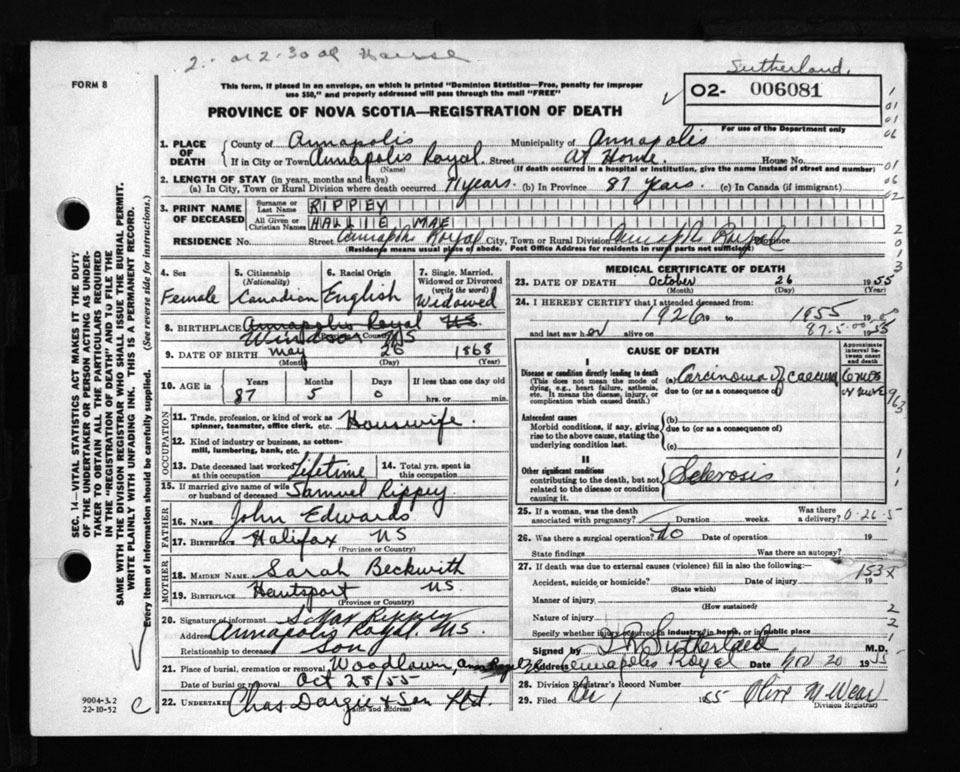 2. at 2-30 at House
Sutherland.
FORM 8
This form, if placed in an envelope, on which is printed "Dominion Statistics—Free, penalty for improper
use $50," and properly addressed will pass through the mail "FREE"
02- 006081
For use of the Department only
PROVINCE OF NOVA SCOTIA—REGISTRATION OF DEATH
SEC. 14—VITAL STATISTICS ACT MAKES IT THE DUTY
OF THE UNDERTAKER OR PERSON ACTING AS UNDER-
TAKER TO OBTAIN ALL THE PARTICULARS REQUIRED
IN THE "REGISTRATION OF DEATH" AND TO FILE THE
SAME WITH THE DIVISION REGISTRAR WHO SHALL ISSUE THE BURIAL PERMIT.
WRITE PLAINLY WITH UNFADING INK. THIS IS A PERMANENT RECORD.
Every item of information should be carefully supplied. (See reverse side for instructions.)
1. PLACE OF DEATH County of Annapolis Municipality of Annapolis
If in City or Town Annapolis Royal. Street At Home. House No.
(Name) (If death occurred in a hospital or institution, give the name instead of street and number)
2. LENGTH OF STAY (in years, months and days)
(a) In City, Town or Rural Division where death occurred 71 years. (b) In Province 87 years. (c) In Canada (if immigrant)
3. PRINT NAME OF DECEASED Surname or Last Name RIPPEY
All Given or Christian Names HALLIE MAE
RESIDENCE No. Street Annapolis Royal City, Town or Rural Division Annapolis Royal Province
(Residence means usual place of abode. Post Office Address for residents in rural parts not sufficient)
4. Sex Female
5. Citizenship (Nationality) Canadian
6. Racial Origin English
7. Single, Married, Widowed or Divorced (write the word) Widowed
8. BIRTHPLACE Annapolis Royal NS
Windsor NS
(Province or Country)
9. DATE OF BIRTH May 26 1868
(Month) (Day) (Year)
10. AGE in Years Months Days If less than one day old
87 5 0 hrs. or min.
OCCUPATION
11. Trade, profession or kind of work as spinner, teamster, office clerk, etc. Housewife.
12. Kind of industry or business, as cotton-mill, lumbering, bank, etc.
13. Date deceased last worked at this occupation Lifetime 14. Total yrs. spent in this occupation
15. If married give name of wife or husband of deceased Samuel Rippey
FATHER
16. NAME John Edwards
17. BIRTHPLACE Halifax NS
(Province or Country)
MOTHER
18. MAIDEN NAME Sarah Beckwith
19. BIRTHPLACE Hantsport NS
(Province or Country)
20. Signature of informant S. Max Rippey
Address Annapolis Royal. NS.
Relationship to deceased Son
21. Place of burial, cremation or removal Woodlawn, Ann Royal
Date of burial or removal Oct 28/55
22. UNDERTAKER Chas Dargie & Son Ltd.
(Name and address)
9004-3.2
22-10-52
C
MEDICAL CERTIFICATE OF DEATH
23. DATE OF DEATH October 26 1955
(Month) (Day) (Year)
24. I HEREBY CERTIFY that I attended deceased from:
1926 19 to 1955 19
and last saw her alive on 1955
CAUSE OF DEATH
Approximate interval between onset and death
I
Disease or condition directly leading to death (a) Carcinoma of caecum 6 mos or more
(This does not mean the mode of dying, e.g., heart failure, asthenia, etc. It means the disease, injury, or complication which caused death.) due to (or as a consequence of)
Antecedent causes (b)
Morbid conditions, if any, giving rise to the above cause, stating the underlying condition last. due to (or as a consequence of)
(c)
II
Other significant conditions contributing to the death, but not related to the disease or condition causing it. Sclerosis
25. If a woman, was the death associated with pregnancy? Duration weeks. Was there a delivery? 0-26-5
26. Was there a surgical operation? No Date of operation 19
State findings Was there an autopsy?
27. If death was due to external causes (violence) fill in also the following:—
153X
Accident, suicide or homicide? Date of injury 19
(State which)
Manner of injury
(How sustained)
Nature of injury
Specify whether injury occurred in industry, in home, or in public place
Signed by Sutherland M.D.
Address Annapolis Royal Date Nov 20 1955
28. Division Registrar's Record Number
29. Filed 1955 Olive M Wear
Division Registrar